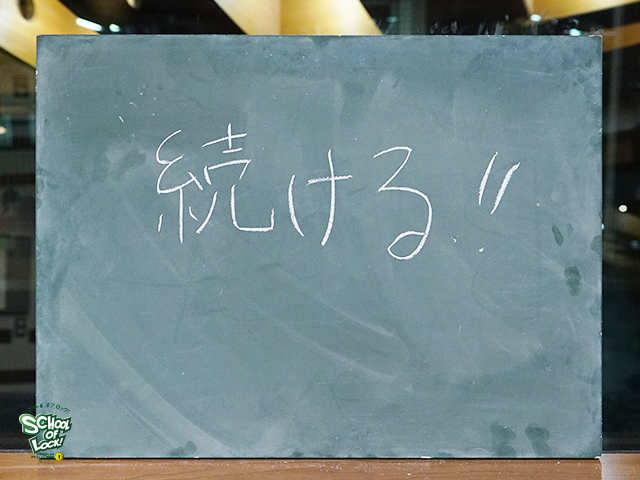 続ける!!
SCHOOL
OF
LOCK!